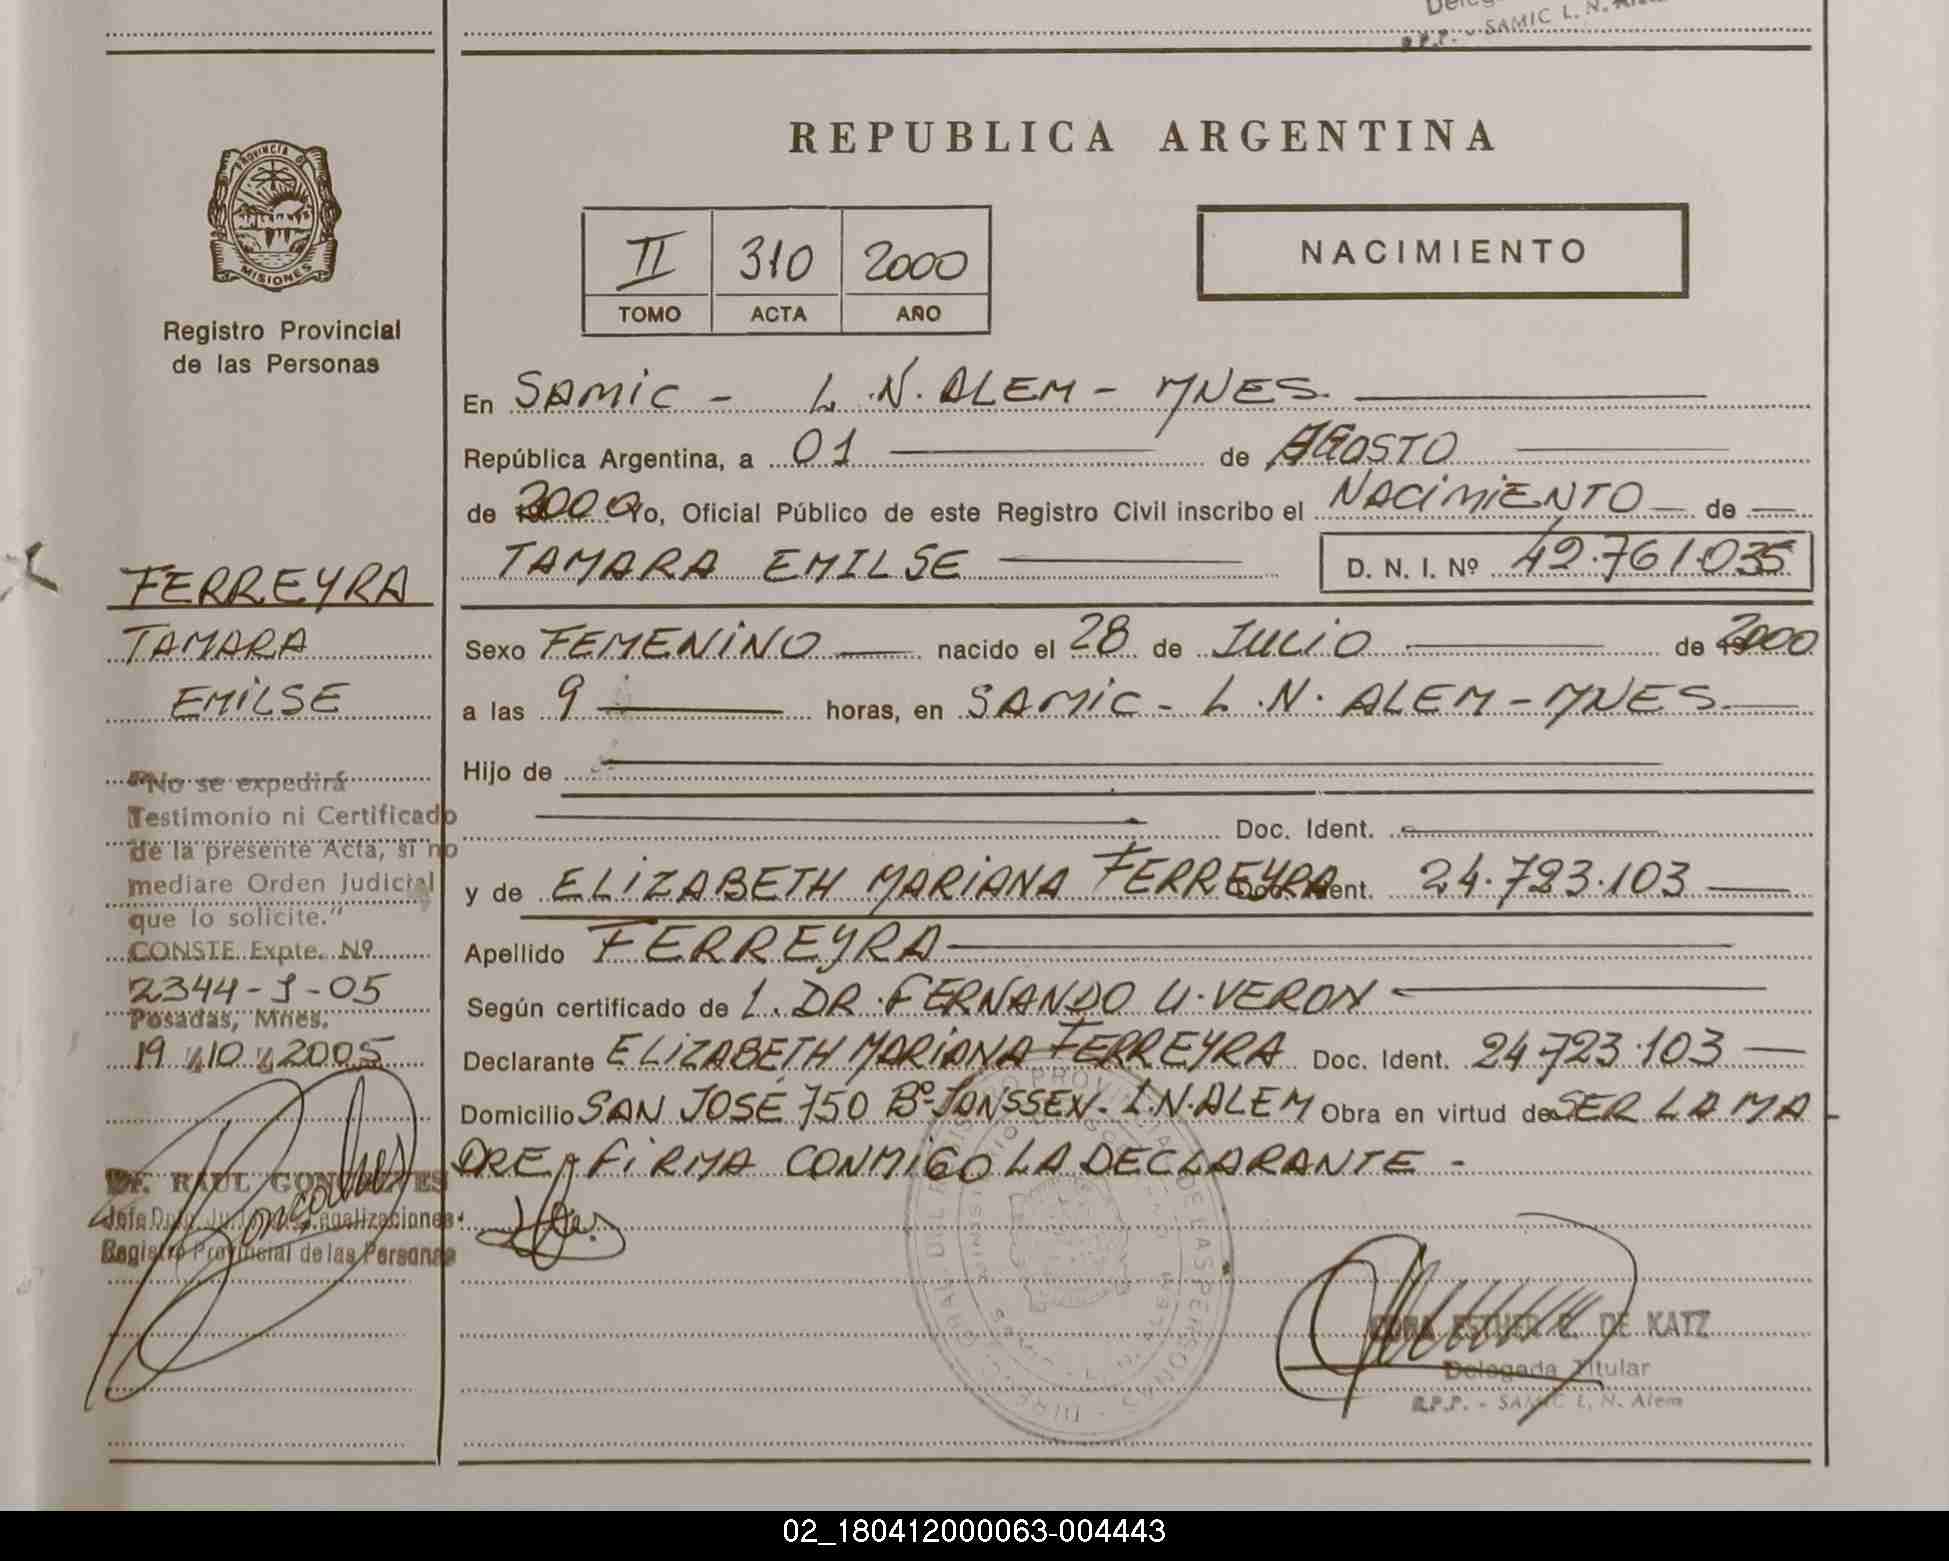 SAMIC L. N.
R.P.P. - SAMIC L. N. Alem
PROVINCIA D
MISIONES
Registro Provincial
de las Personas
REPUBLICA ARGENTINA
II 310 2000
TOMO ACTA AÑO
NACIMIENTO
En SAMIC - L.N. ALEM - MNES.
República Argentina, a 01 de AGOSTO
de 2000 Yo, Oficial Público de este Registro Civil inscribo el NACIMIENTO de
TAMARA EMILSE D. N. I. Nº 42.761.035
Sexo FEMENINO nacido el 28 de JULIO de 2000
a las 9 horas, en SAMIC - L.N. ALEM - MNES.
Hijo de
Doc. Ident.
y de ELIZABETH MARIANA FERREYRA Doc. Ident. 24.723.103
Apellido FERREYRA
Según certificado de L. DR. FERNANDO U. VERON
Declarante ELIZABETH MARIANA FERREYRA Doc. Ident. 24.723.103
Domicilio SAN JOSÉ 750 Bº JANSSEN. L.N. ALEM Obra en virtud de SER LA MA
DRE, FIRMA CONMIGO LA DECLARANTE -
FERREYRA
TAMARA
EMILSE
"No se expedirá
Testimonio ni Certificado
de la presente Acta, si no
mediare Orden Judicial
que lo solicite."
CONSTE Expte. Nº
2344-J-05
Posadas, Mnes.
19 / 10 / 2005
Dr. RAUL GONCALVES
Registro Provincial de las Personas
ESTHER DE KATZ
Delegada Titular
R.P.P. - SAMIC L. N. Alem
02_180412000063-004443